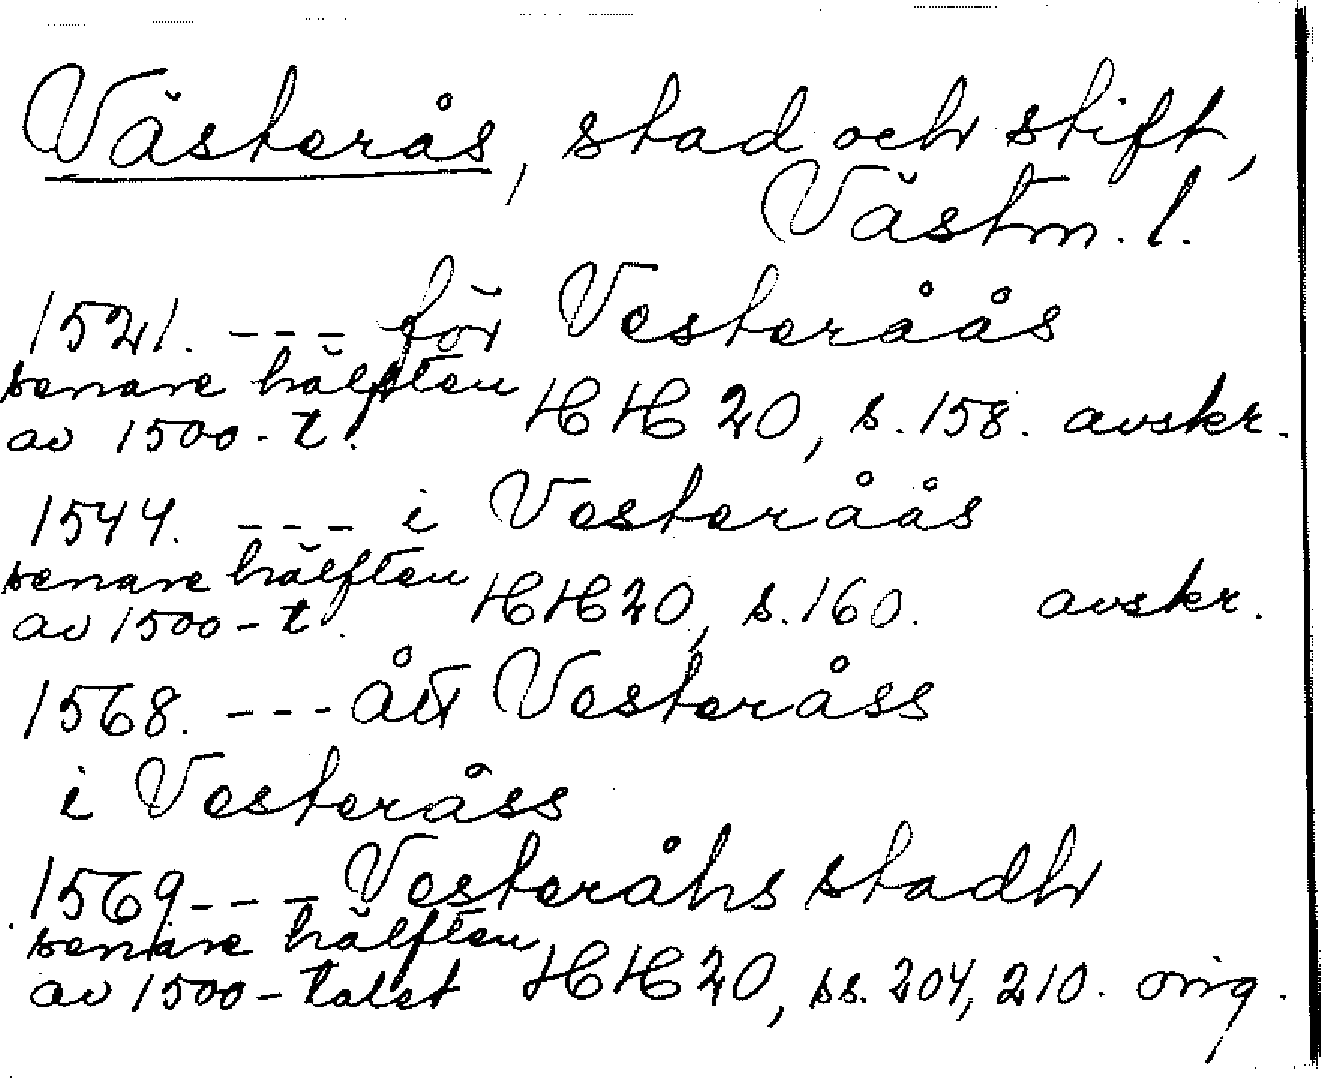 Västerås, stad och stift,
Västm. l.
1521. --- för Vesteråås
senare hälften
av 1500-t. HH 20, s. 158. avskr.
1544. --- i Vesteråås
senare hälften
av 1500-t. HH 20, s. 160. avskr.
1568. --- ått Vesteråss
i Vesteråss
1569 --- Vesteråhs stadh
senare hälften
av 1500-talet HH 20, ss. 204, 210. orig.